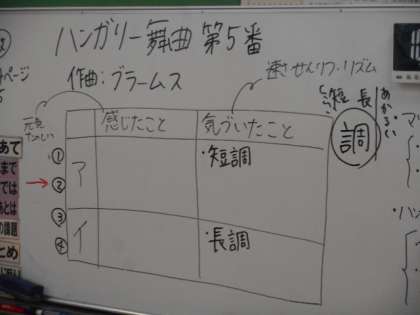 ハンガリー舞曲 第5番
ページ
作曲:ブラームス
速さ せんりつ・リズム
元気
感じたこと
気づいたこと
短 長
あかるい
調
①
ア
・短調
②
③
イ
・長調
④
あて
まで
では
あとは
の課題
とめ
・マ
・ハン